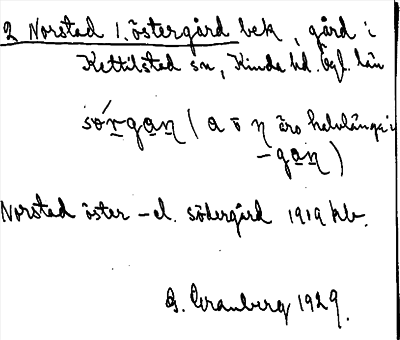 2 Norstad l. östergård bek, gård i
Kettilstad sn, Kinda hd. Ögl. län
sórgan (a o n äro halvlånga i
-gan)
Norstad öster - el. södergård 1919 krb.
G. Granberg 1929.